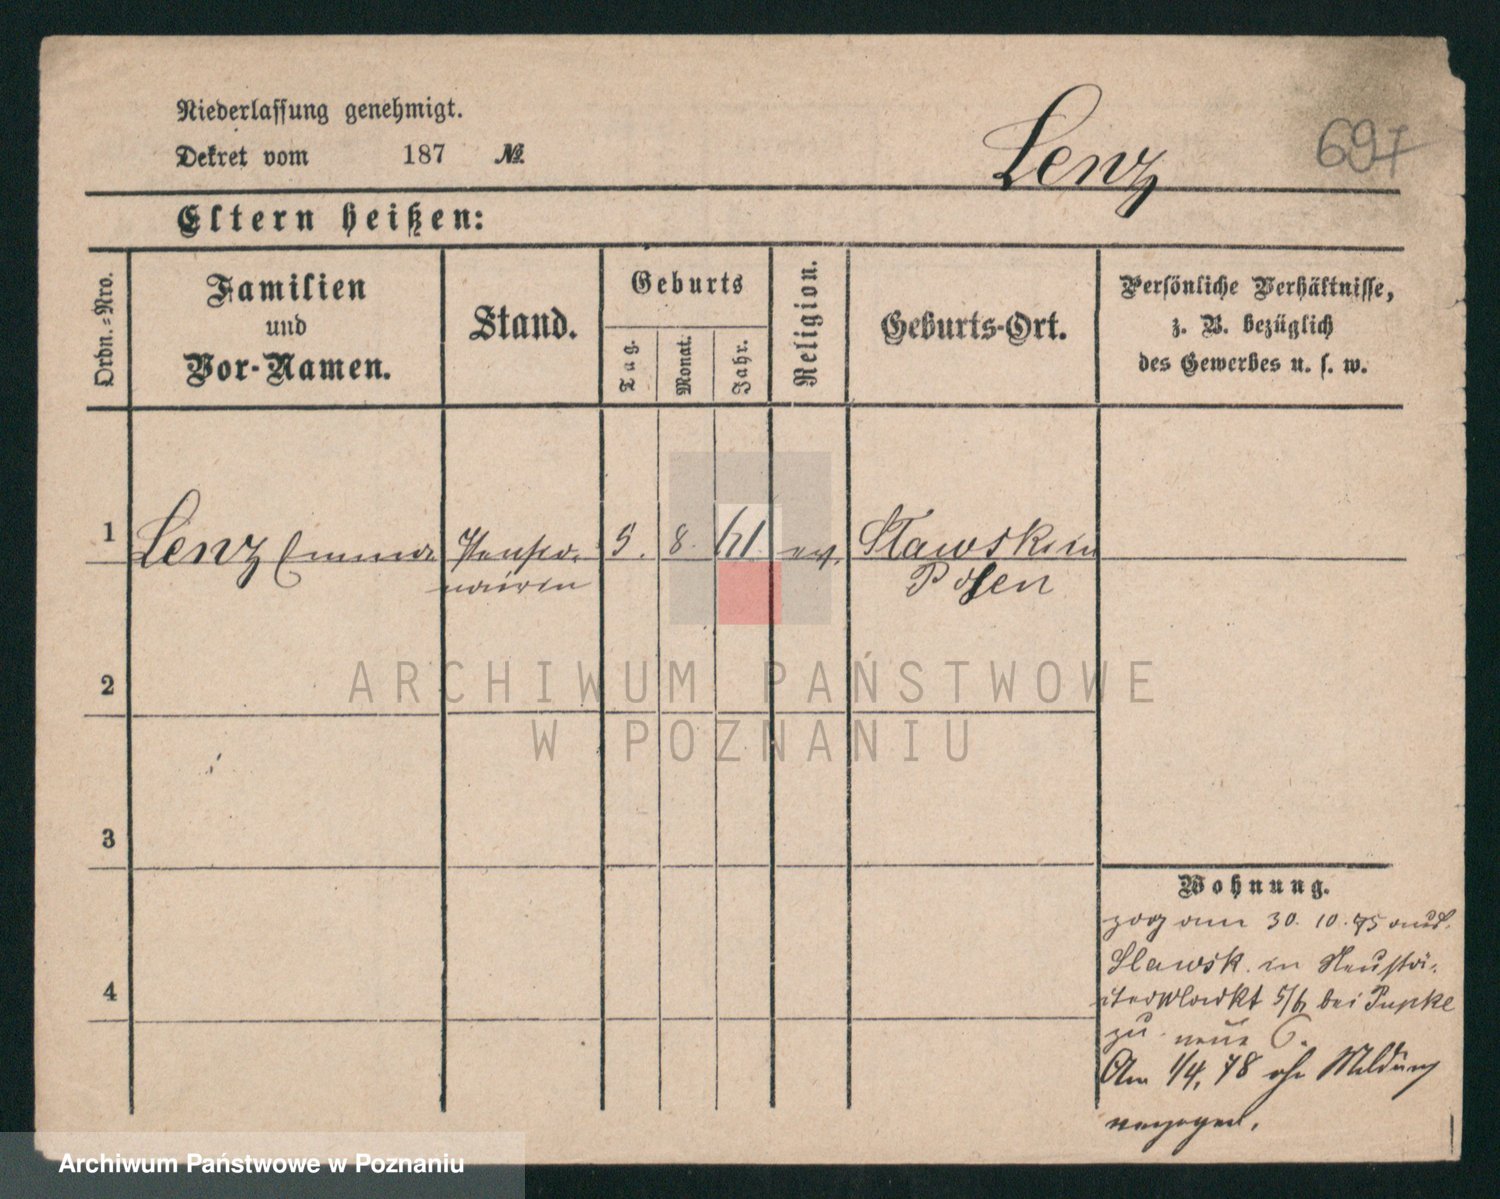 Niederlassung genehmigt.
Dekret vom 187 №
Lenz
697
Eltern heißen:
Ordn.-Nro.
Familien
und
Vor-Namen.
Stand.
Geburts
Tag.
Monat.
Jahr.
Religion.
Geburts-Ort.
Persönliche Verhältnisse,
z. B. bezüglich
des Gewerbes u. s. w.
1
Lenz Emma
Pensio-
nairin
5. 8. 61. ev.
Slawsk in
Posen
2
3
4
Wohnung.
zog am 30. 10. 75 aus
Slawsk in Neustä-
dter Markt 5/6 bei Pupke
zu neue 6.
Am 1/4. 78 ohne Meldung
verzogen.
ARCHIWUM PAŃSTWOWE
W POZNANIU
Archiwum Państwowe w Poznaniu